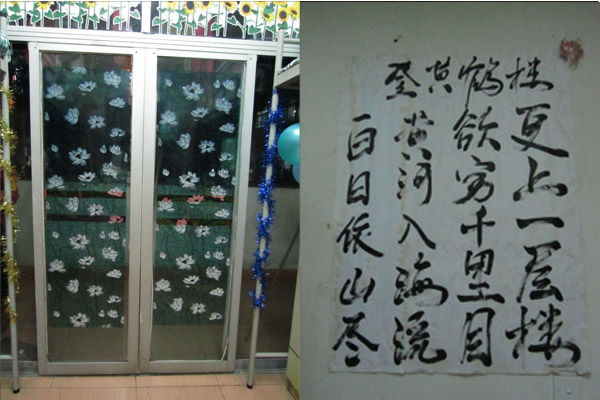 登黄鹤楼
白日依山尽
黄河入海流
欲穷千里目
更上一层楼